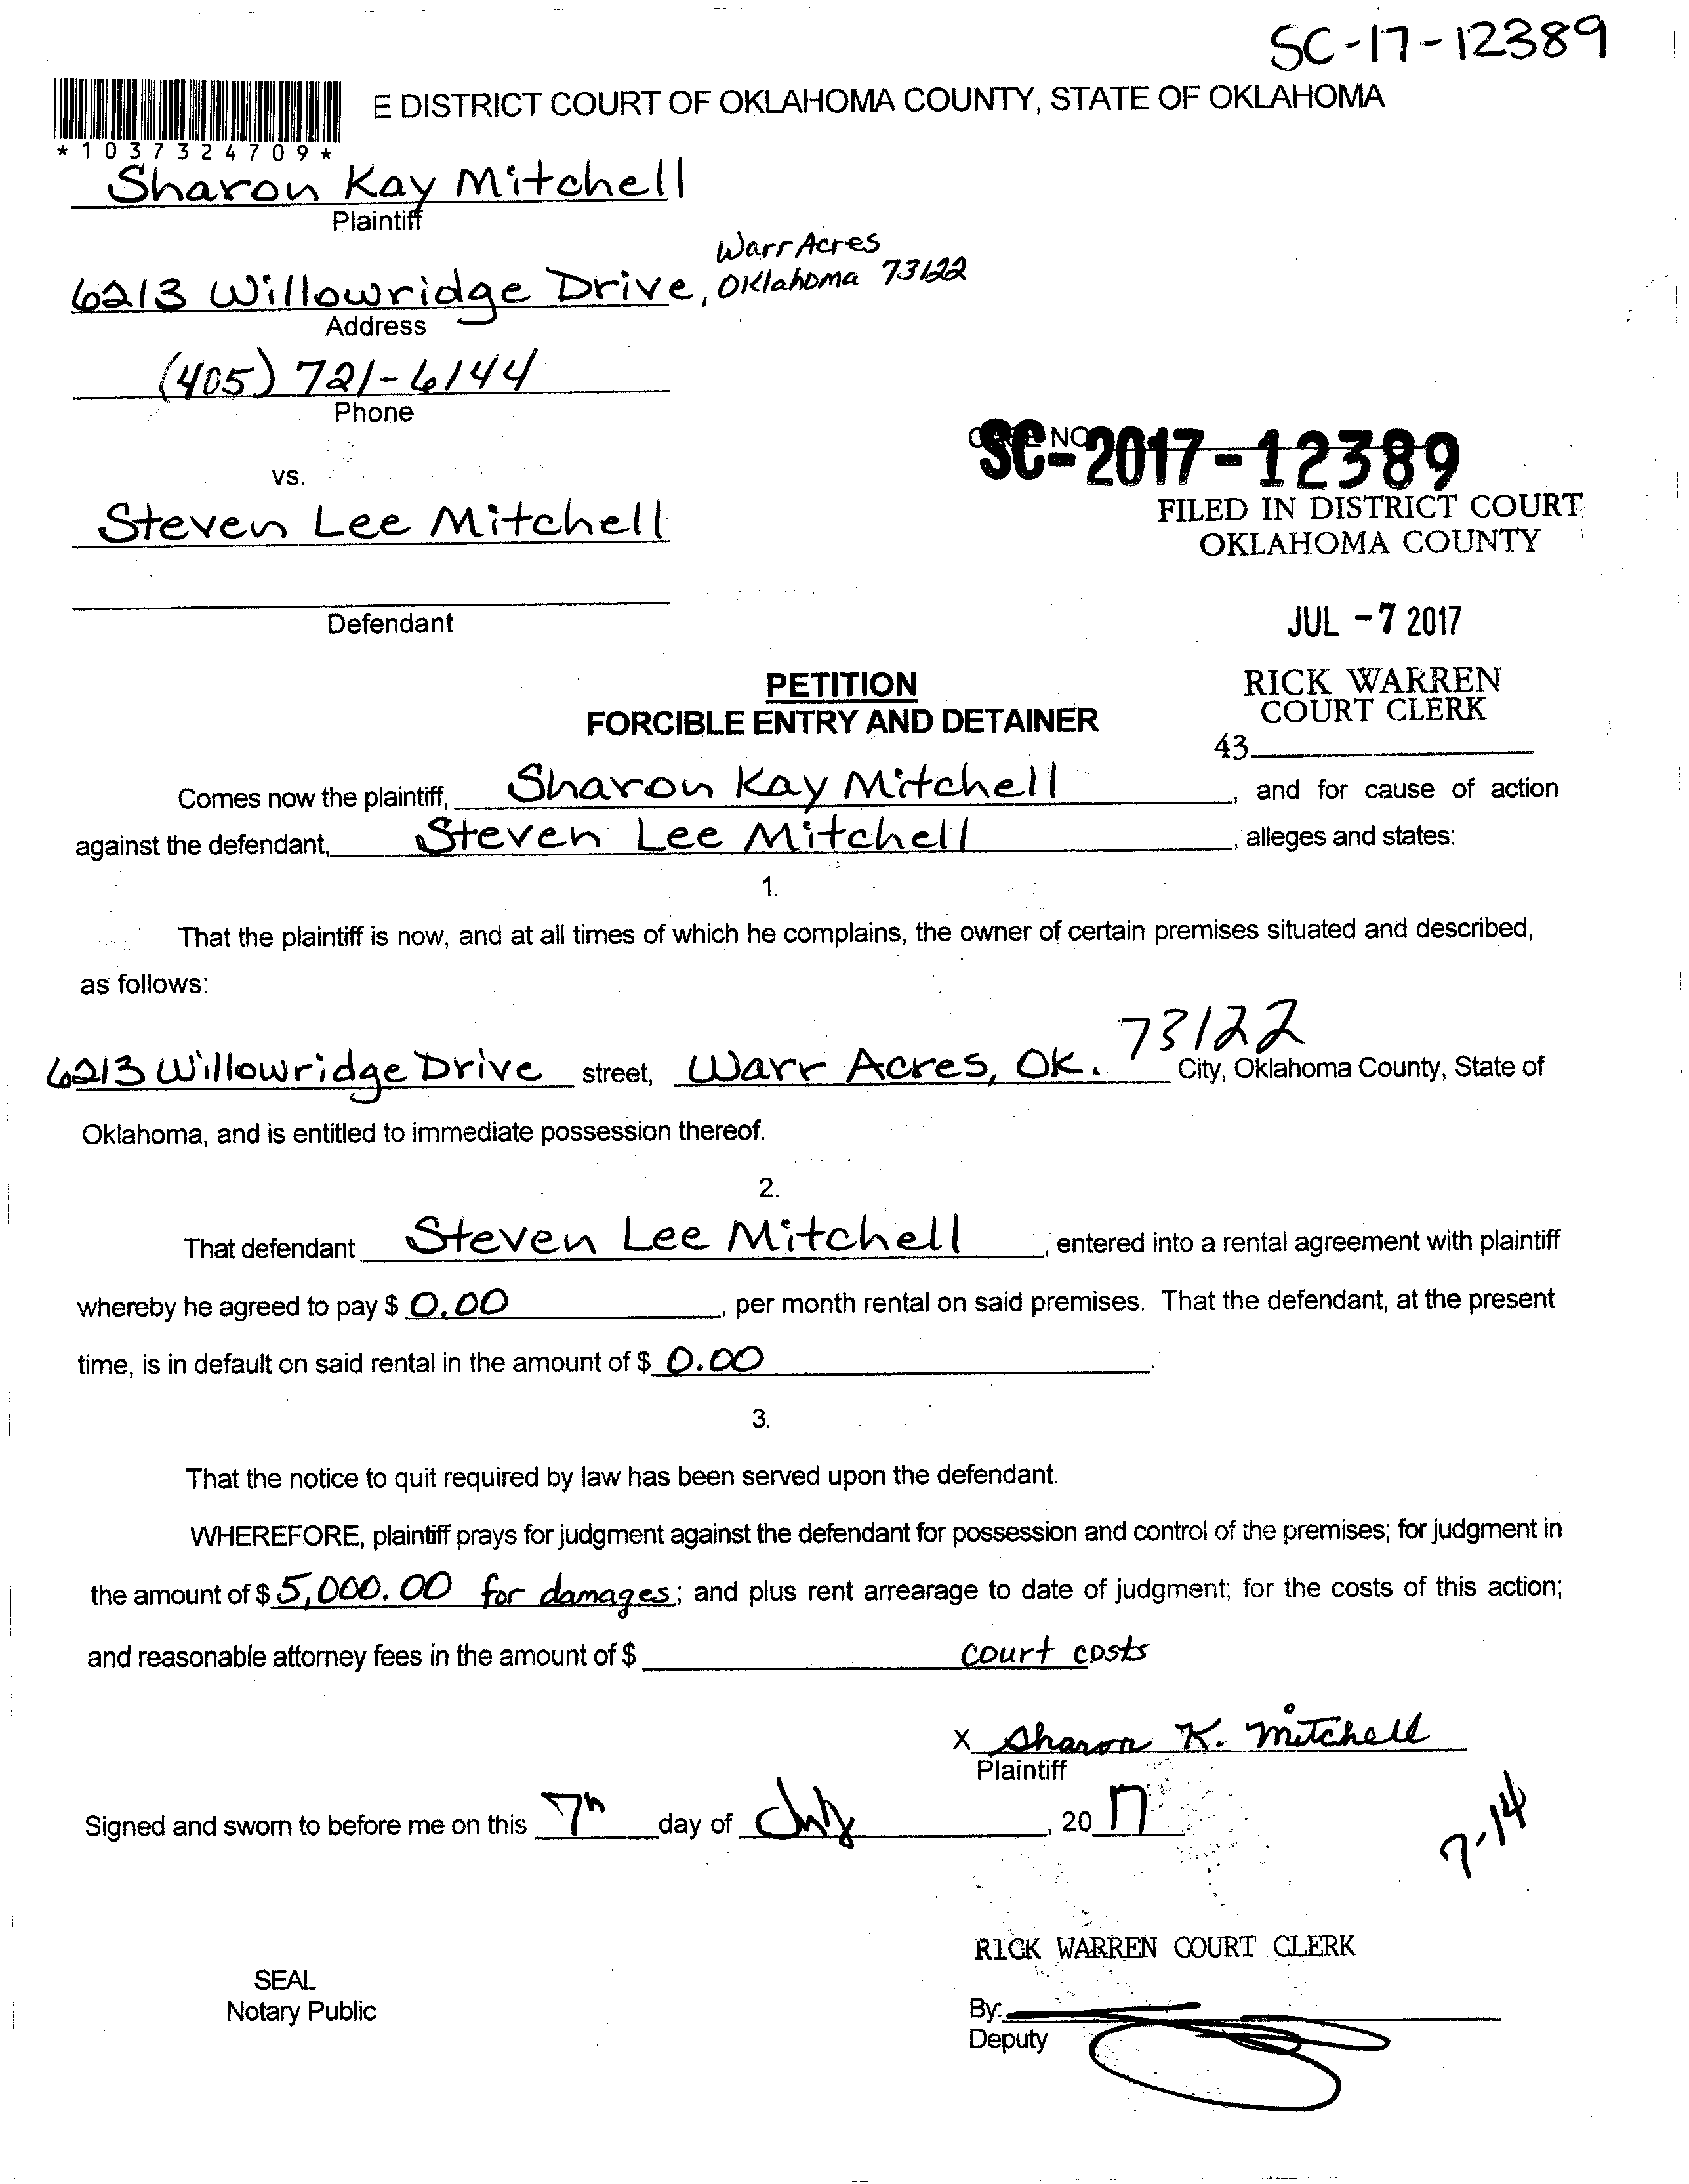 SC-17-12389
E DISTRICT COURT OF OKLAHOMA COUNTY, STATE OF OKLAHOMA
*1037324709*
Sharon Kay Mitchell
Plaintiff
Warr Acres
6213 Willowridge Drive, Oklahoma 73122
Address
(405) 721-6144
Phone
SC-2017-12389
vs.
FILED IN DISTRICT COURT
Steven Lee Mitchell
OKLAHOMA COUNTY
Defendant
JUL -7 2017
PETITION
RICK WARREN
FORCIBLE ENTRY AND DETAINER
COURT CLERK
43
Comes now the plaintiff, Sharon Kay Mitchell, and for cause of action
against the defendant, Steven Lee Mitchell, alleges and states:
1.
That the plaintiff is now, and at all times of which he complains, the owner of certain premises situated and described,
as follows:
6213 Willowridge Drive street, Warr Acres, Ok. 73122 City, Oklahoma County, State of
Oklahoma, and is entitled to immediate possession thereof.
2.
That defendant Steven Lee Mitchell, entered into a rental agreement with plaintiff
whereby he agreed to pay $ 0.00, per month rental on said premises. That the defendant, at the present
time, is in default on said rental in the amount of $ 0.00.
3.
That the notice to quit required by law has been served upon the defendant.
WHEREFORE, plaintiff prays for judgment against the defendant for possession and control of the premises; for judgment in
the amount of $ 5,000.00 for damages; and plus rent arrearage to date of judgment; for the costs of this action;
and reasonable attorney fees in the amount of $ court costs
X Sharon K. Mitchell
Plaintiff
Signed and sworn to before me on this 7th day of July, 2017
7-14
RICK WARREN COURT CLERK
SEAL
Notary Public
By:
Deputy